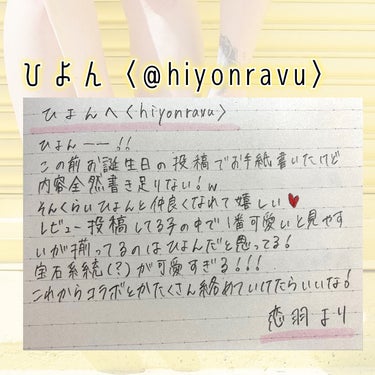 ひよん〈@hiyonravu〉
ひよんへ〈hiyonravu〉
ひよんーー!!
この前お誕生日の投稿でお手紙書いたけど
内容全然書き足りない!w
そんくらいひよんと仲良くなれて嬉しい♥
レビュー投稿してる子の中で1番可愛いと見やす
いが揃ってるのはひよんだと思ってる!
宝石系統(?)が可愛すぎる!!!
これからコラボとかたくさん絡めていけたらいいな!
恋羽より